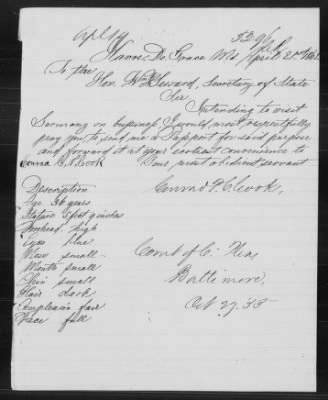 Havre De Grace Md April 21st
To the
Hon. Wm H Seward, Secretary of State
Sir
Intending to visit
Germany on business I would most respectfully
pray you to send me a Passport for said purpose
and forward it at your earliest convenience to
Conrad P. Cook Your most obedient servant
Conrad P. Cook,
Description
Age 36 years
Stature 5 feet inches
Forehead, high
Eyes blue
Nose small
Mouth small
Chin small
Hair dark
Complexion fair
Face full
Court of C. Pleas
Baltimore,
Oct 27. 55